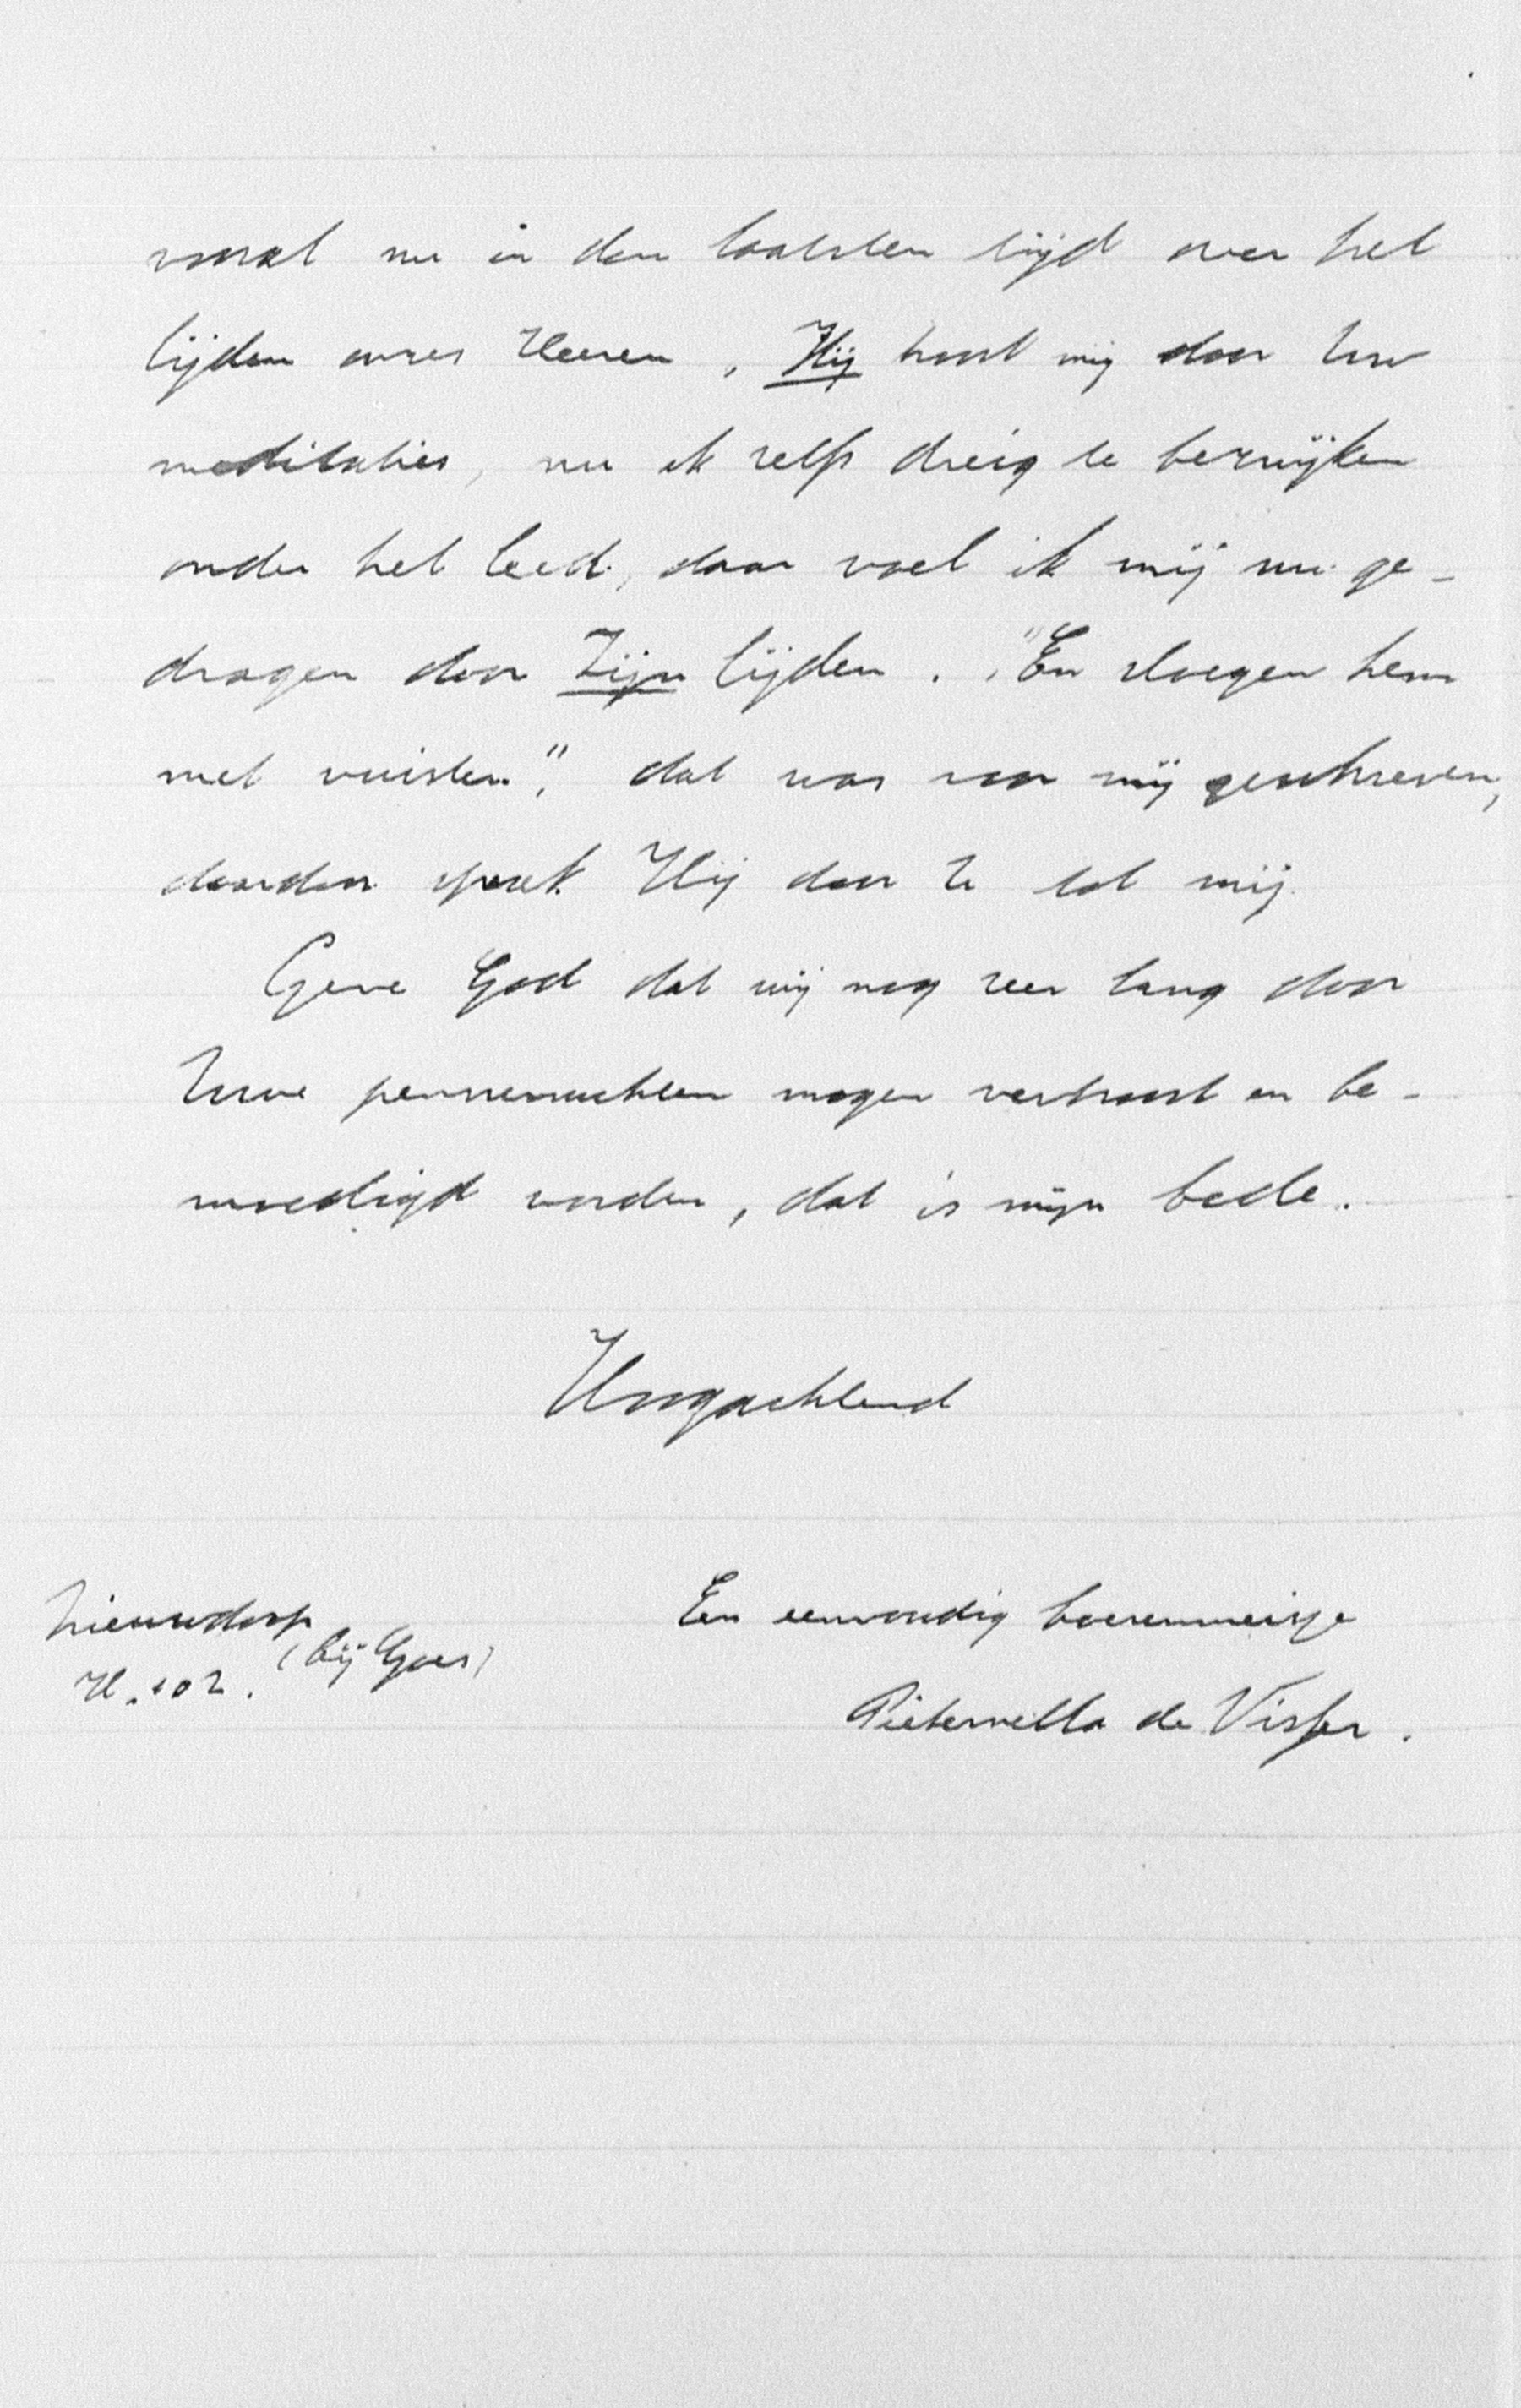 vooral nu in den laatsten tijd over het
lijden onzes Heeren, Hij troost mij door Uw
meditaties, nu ik zelfs dreig te bezwijken
onder het leed, daar voel ik mij nu ge-
dragen door Zijn lijden. "En sloegen hem
met vuisten", dat was voor mij geschreven,
daardoor sprak Hij door U tot mij.
Geve God dat wij nog zeer lang door
Uwe pennevruchten mogen vertroost en be-
moedigd worden, dat is mijn bede.
Hoogachtend
Een eenvoudig boerenmeisje
Pieternella de Visser.
Nieuwdorp
(bij Goes)
H. 102.